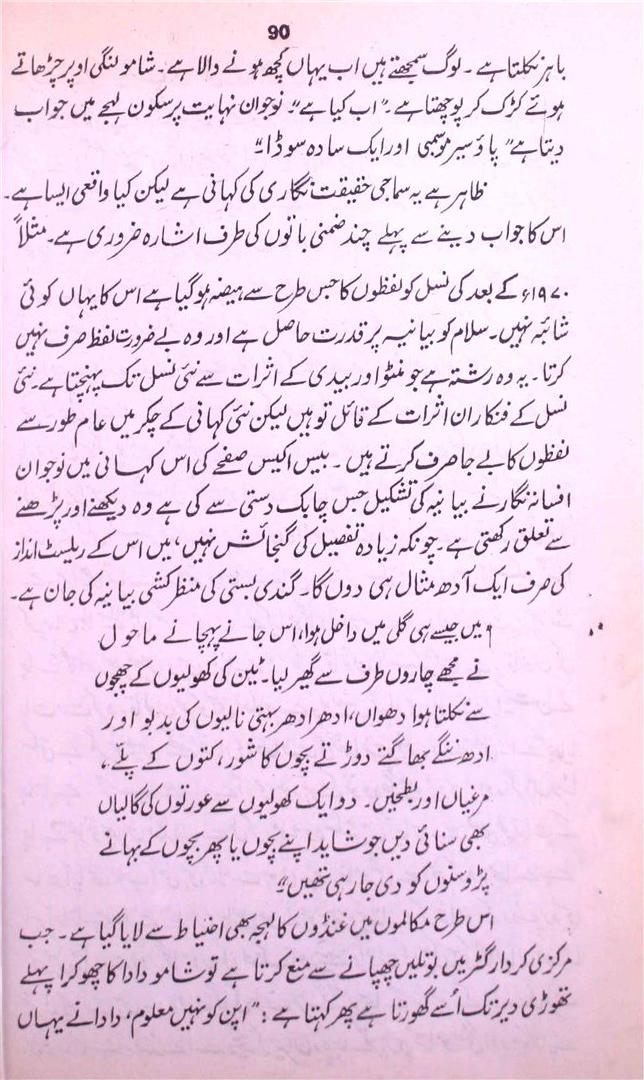 90
باہر نکلتا ہے۔ لوگ سمجھتے ہیں اب یہاں کچھ ہونے والا ہے۔ شامو لنگی اوپر چڑھاتے
ہوئے کڑک کر پوچھتا ہے۔ "اب کیا ہے"۔ نوجوان نہایت پرسکون لہجے میں جواب
دیتا ہے "پاؤ سیر موسمبی اور ایک سادہ سوڈا"۔
ظاہر ہے یہ سماجی حقیقت نگاری کی کہانی ہے لیکن کیا واقعی ایسا ہے۔
اس کا جواب دینے سے پہلے چند ضمنی باتوں کی طرف اشارہ ضروری ہے۔ مثلاً
۱۹۷۰ء کے بعد کی نسل کو لفظوں کا جس طرح سے ہیضہ ہو گیا ہے اس کا یہاں کوئی
شائبہ نہیں۔ سلام کو بیانیہ پر قدرت حاصل ہے اور وہ بے ضرورت لفظ صرف نہیں
کرتا۔ یہ وہ رشتہ ہے جو منٹو اور بیدی کے اثرات سے نئی نسل تک پہنچتا ہے۔ نئی
نسل کے فنکار ان اثرات کے قائل تو ہیں لیکن نئی کہانی کے چکر میں عام طور سے
لفظوں کا بے جا صرف کرتے ہیں۔ بیس اکیس صفحے کی اس کہانی میں نوجوان
افسانہ نگار نے بیانیہ کی تشکیل جس چابک دستی سے کی ہے وہ دیکھنے اور پڑھنے
سے تعلق رکھتی ہے۔ چونکہ زیادہ تفصیل کی گنجائش نہیں، میں اس کے ریلسٹ انداز
کی صرف ایک آدھ مثال ہی دوں گا۔ گندی بستی کی منظر کشی بیانیہ کی جان ہے۔
"میں جیسے ہی گلی میں داخل ہوا، اس جانے پہچانے ماحول
نے مجھے چاروں طرف سے گھیر لیا۔ ٹین کی کھولیوں کے چھجوں
سے نکلتا ہوا دھواں، ادھر ادھر بہتی نالیوں کی بدبو اور
ادھ ننگے بھاگتے دوڑتے بچوں کا شور، کتوں کے پلّے،
مرغیاں اور بطخیں۔ دو ایک کھولیوں سے عورتوں کی گالیاں
بھی سنائی دیں جو شاید اپنے بچوں یا پھر بچوں کے بہانے
پڑوسنوں کو دی جا رہی تھیں"۔
اس طرح مکالموں میں غنڈوں کا لہجہ بھی احتیاط سے لایا گیا ہے۔ جب
مرکزی کردار گٹر میں بوتلیں چھپانے سے منع کرتا ہے تو شامو دادا کا چھوکرا پہلے
تھوڑی دیر تک اُسے گھورتا ہے پھر کہتا ہے: "اپن کو نہیں معلوم، دادا نے یہاں